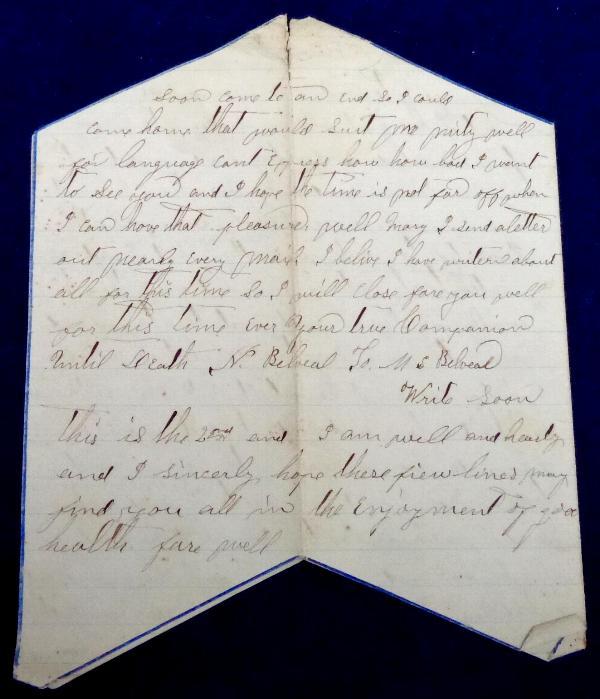 soon come to an end so I could
come home that would suit me purty well
for language cant Express how how bad I want
to see you and I hope the time is not far off when
I can have that pleasure well Mary I send a letter
out nearly every mail I belive I have writen about
all for this time so I will close fare you well
for this time ever your true Companion
until Death N. Belveal To M S Belveal
Write soon
this is the 2nd and I am well and hearty
and I sincerly hope these fiew lines may
find you all in the Enjoyment of good
health fare well